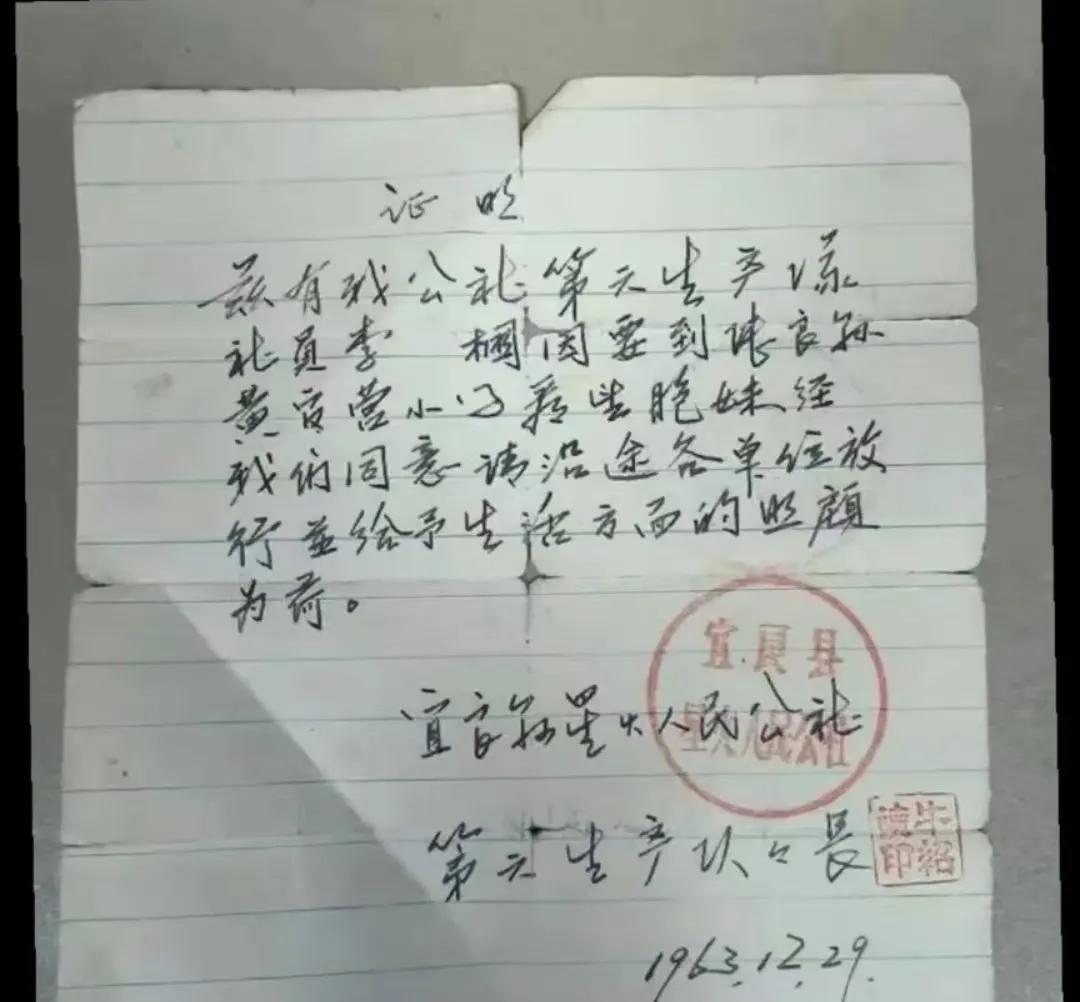 证明
兹有我公社第六生产隊
社员李 因要到陆良縣
黄官营小 看望胞妹经
我们同意请沿途各单位放
行並给予生活方面的照顾
为荷。
宜良县
宜良縣星火人民公社
星火人民公社
第六生产队队長
牛绍
印
1963.12.29.